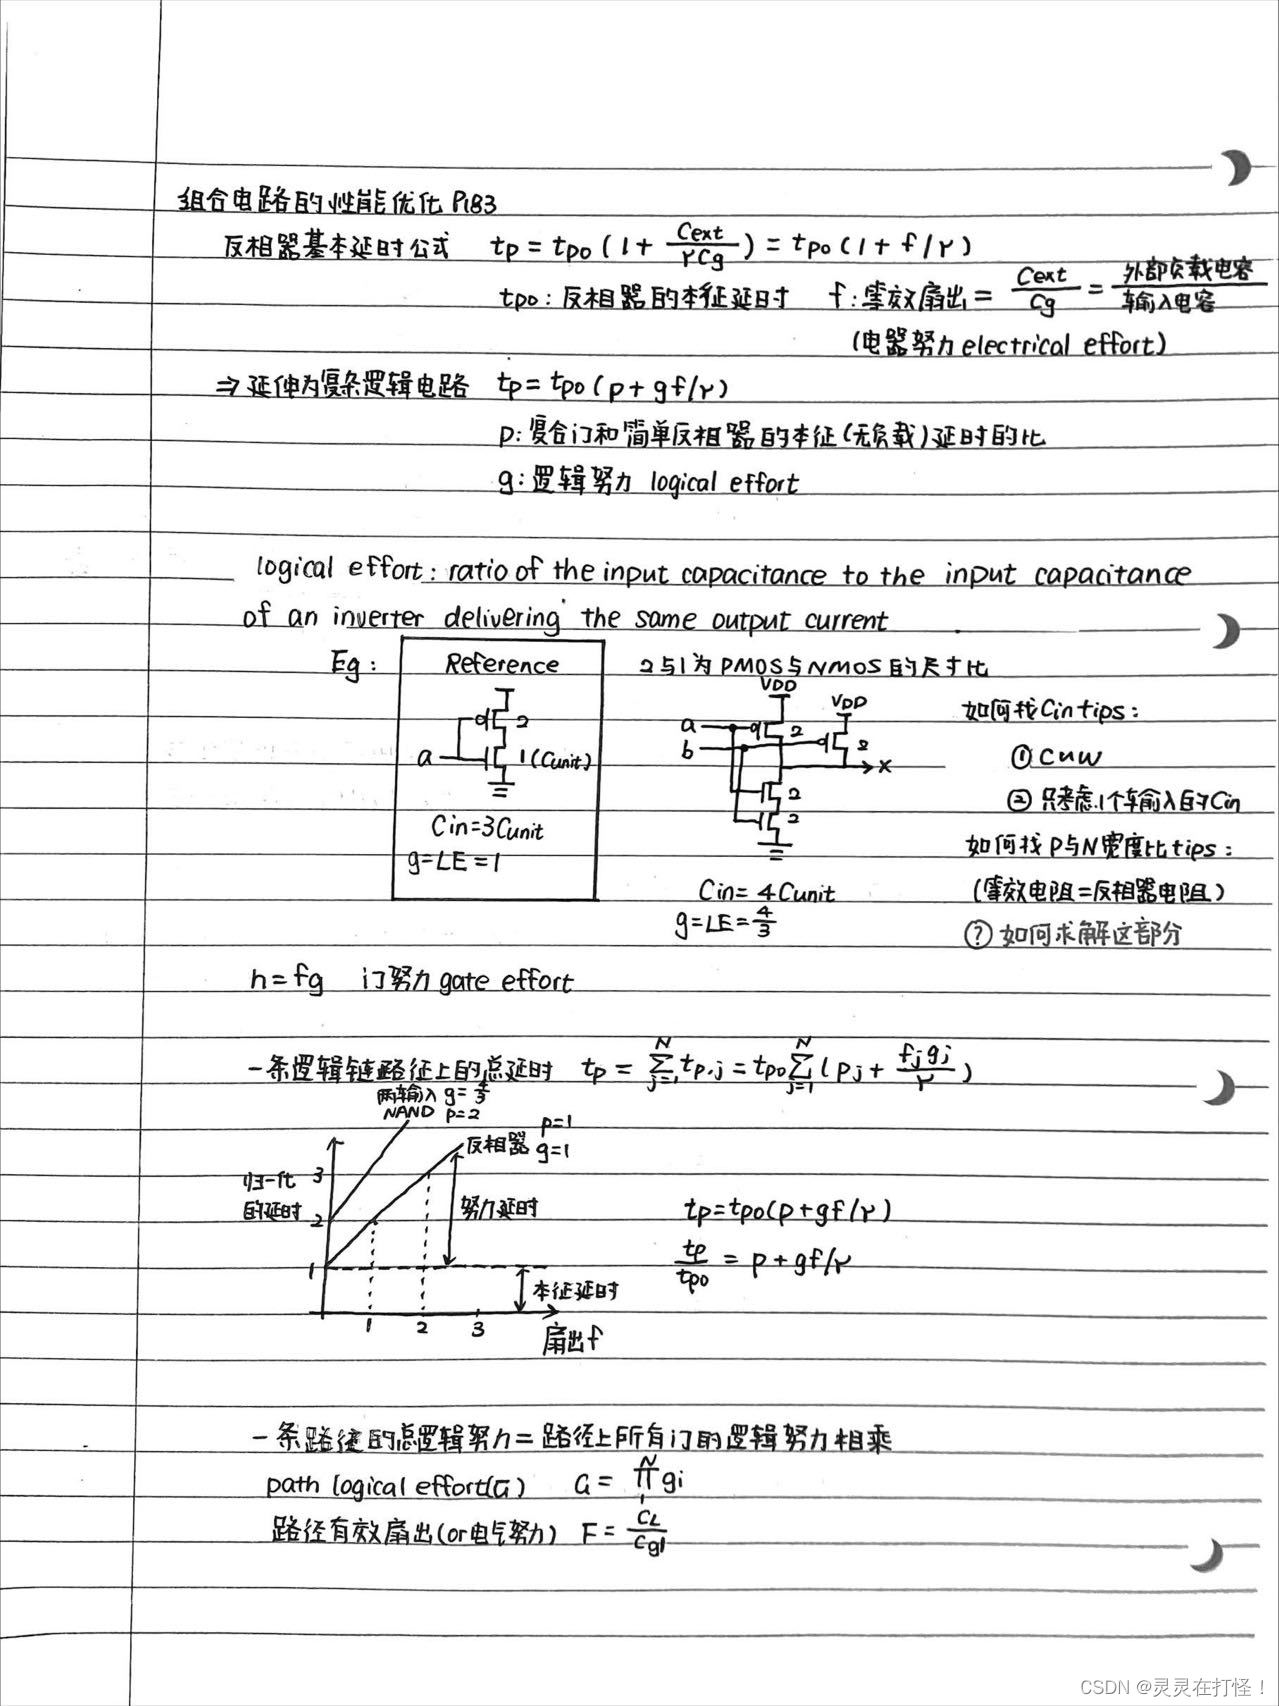 组合电路的性能优化 P183
反相器基本延时公式 tp = tpo (1 + Cext/γCg) = tpo (1 + f/γ)
tpo : 反相器的本征延时 f : 等效扇出 = Cext/Cg = 外部负载电容/输入电容
(电器努力 electrical effort)
⇒ 延伸为复杂逻辑电路 tp = tpo (p + gf/γ)
p : 复合门和简单反相器的本征(无负载)延时的比
g : 逻辑努力 logical effort
logical effort : ratio of the input capacitance to the input capacitance
of an inverter delivering the same output current
Eg :
Reference
2
a
1 (Cunit)
Cin=3Cunit
g=LE=1
2与1为PMOS与NMOS的尺寸比
VDD
VDD
a
2
b
2
x
2
2
Cin= 4Cunit
g=LE=4/3
如何找Cin tips :
① C∝W
② 只考虑1个输入的Cin
如何找P与N宽度比tips :
(等效电阻=反相器电阻)
? 如何求解这部分
h = fg 门努力 gate effort
一条逻辑链路径上的总延时 tp = ∑(j=1→N) tp,j = tpo ∑(j=1→N) (pj + fjgj/γ)
两输入 g=4/3
NAND p=2
反相器 p=1 g=1
归一化
的延时
3
2
1
努力延时
本征延时
1 2 3
扇出f
tp=tpo(p+gf/γ)
tp/tpo = p+gf/γ
一条路径的总逻辑努力 = 路径上所有门的逻辑努力相乘
path logical effort(G) G = ∏(1→N) gi
路径有效扇出(or电气努力) F = CL/Cg1
CSDN @灵灵在打怪！